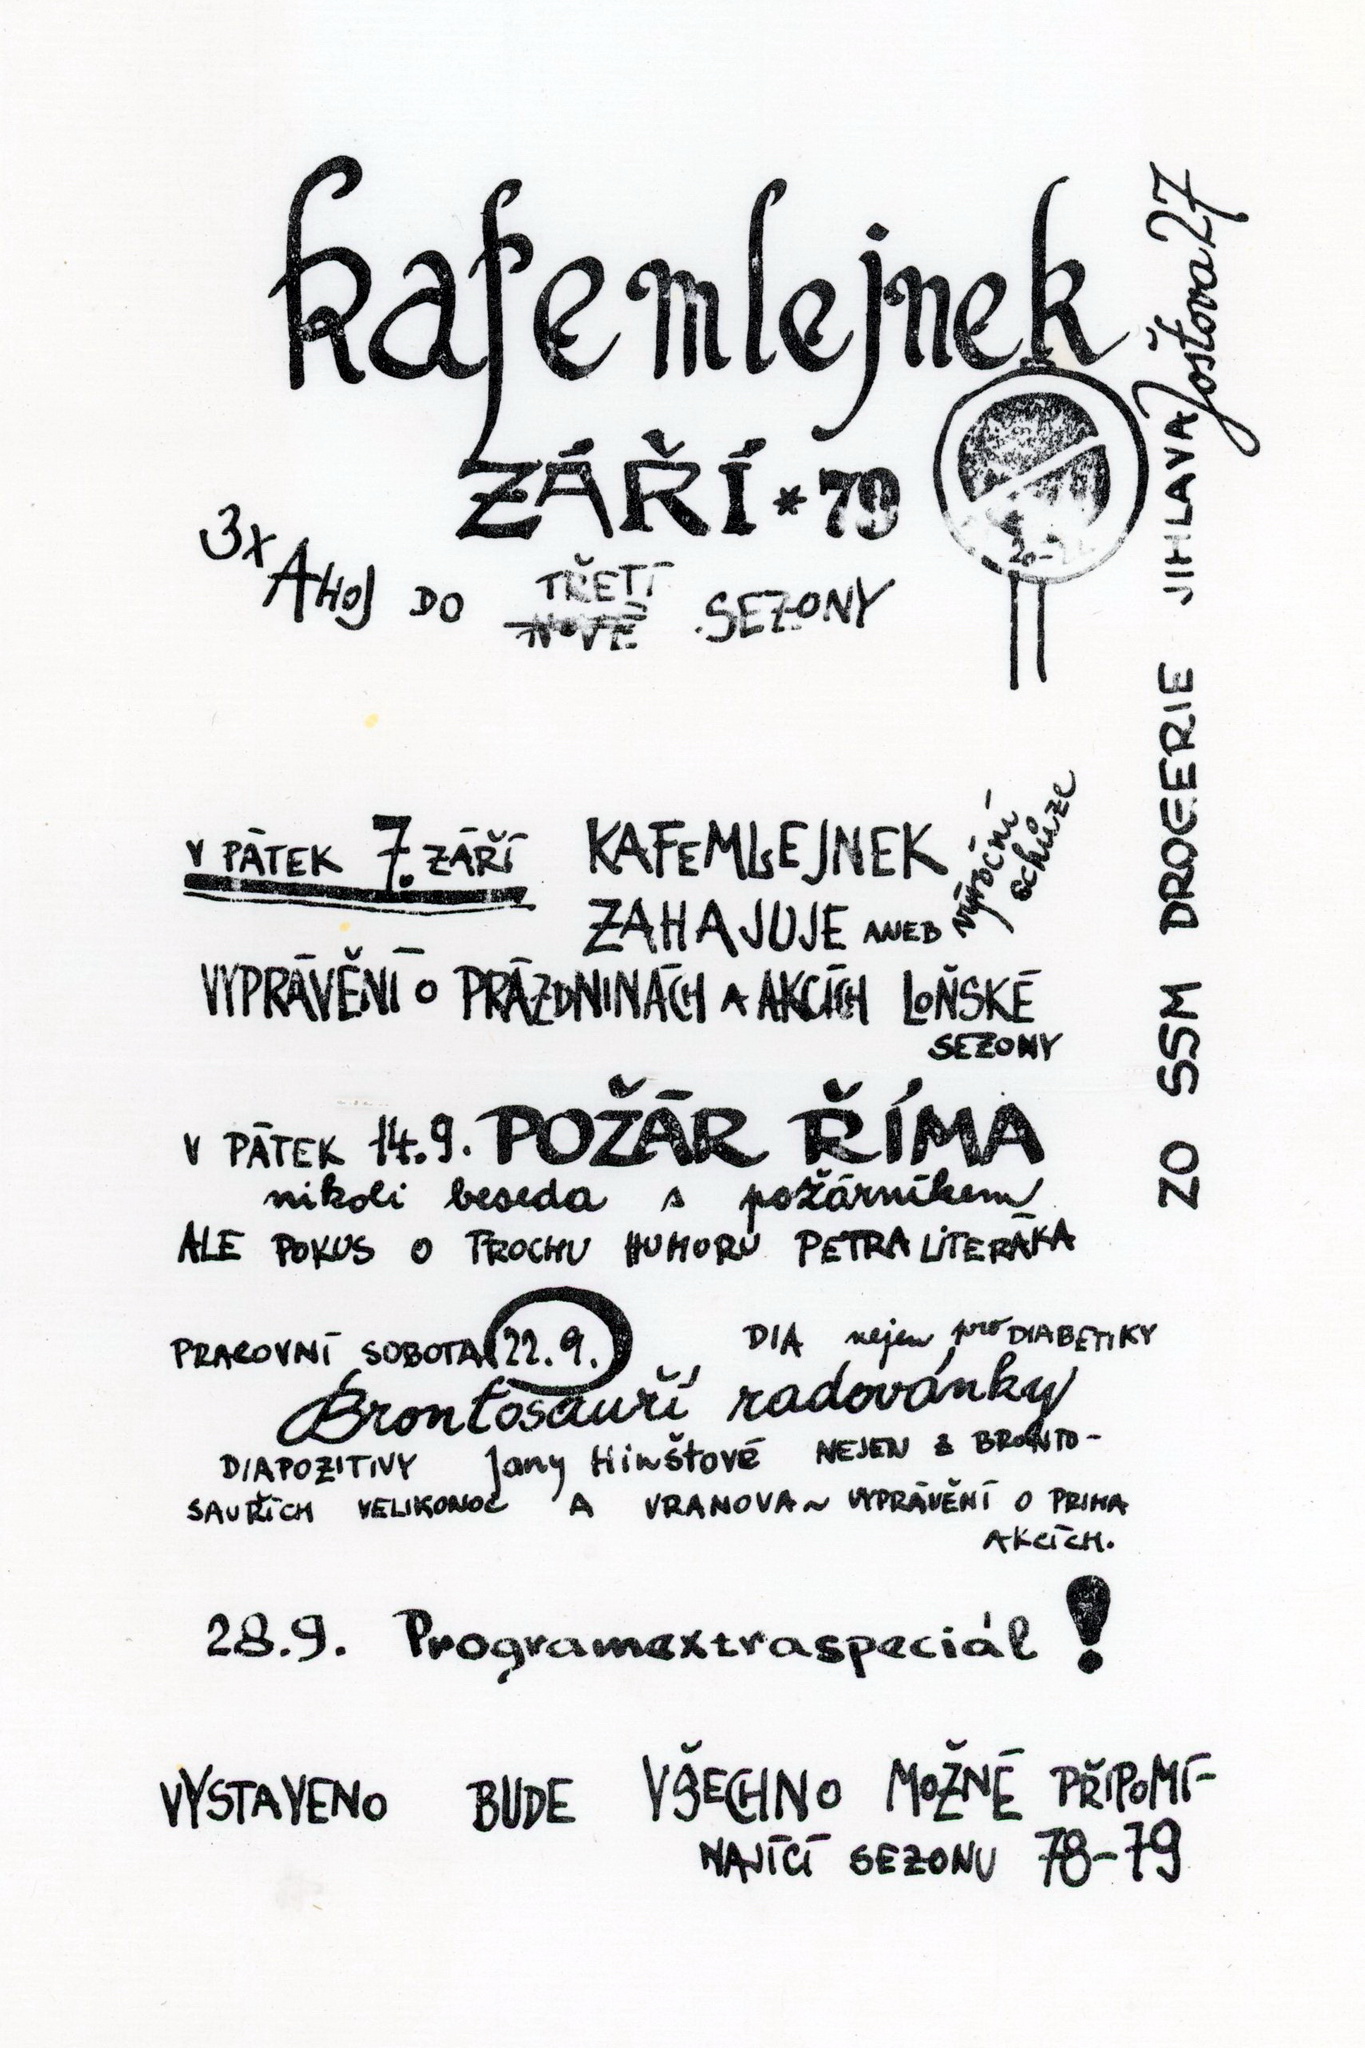 kafemlejnek
ZÁŘÍ * 79
3x AHOJ DO TŘETÍ SEZONY
NOVÉ
V PÁTEK 7. ZÁŘÍ KAFEMLEJNEK
ZAHAJUJE ANEB výroční schůze
VYPRÁVĚNÍ O PRÁZDNINÁCH A AKCÍCH LOŇSKÉ
SEZONY
V PÁTEK 14.9. POŽÁR ŘÍMA
nikoli beseda s požárníkem
ALE POKUS O TROCHU HUMORU PETRA LITERÁKA
PRACOVNÍ SOBOTA 22.9. DIA nejen pro DIABETIKY
Brontosauří radovánky
DIAPOZITIVY Jany Hinštové NEJEN Z BRONTO-
SAUŘÍCH VELIKONOC A VRANOVA ~ VYPRÁVĚNÍ O PRIMA
AKCÍCH.
28.9. Programextraspeciál!
VYSTAVENO BUDE VŠECHNO MOŽNÉ PŘIPOMÍ-
NAJÍCÍ SEZONU 78-79
ZO SSM DROGERIE JIHLAVA Joštova 27